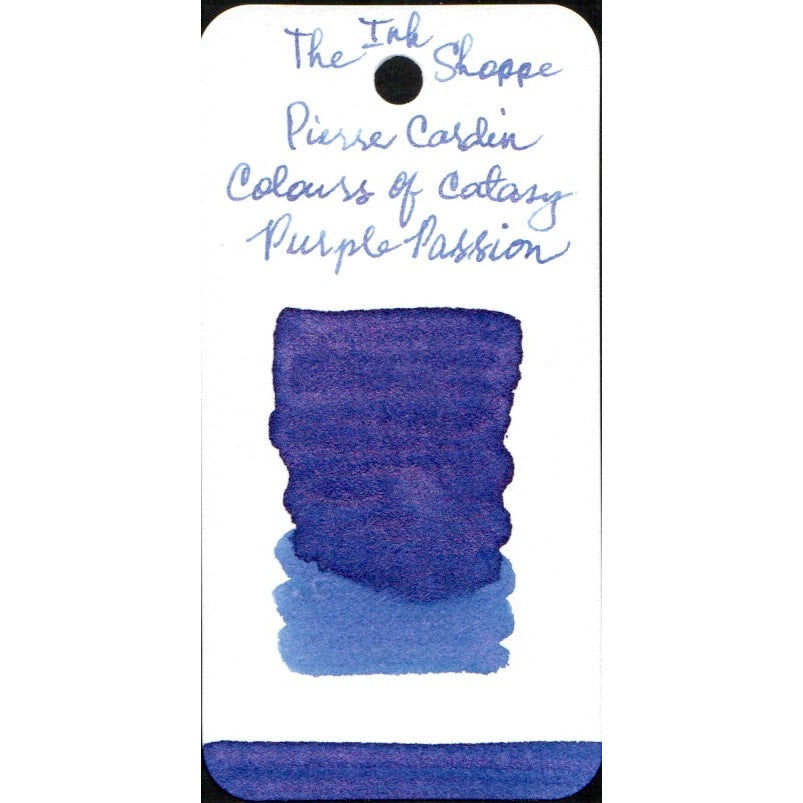 The Ink Shoppe
Pierre Cardin
Colours of Catasy
Purple Passion